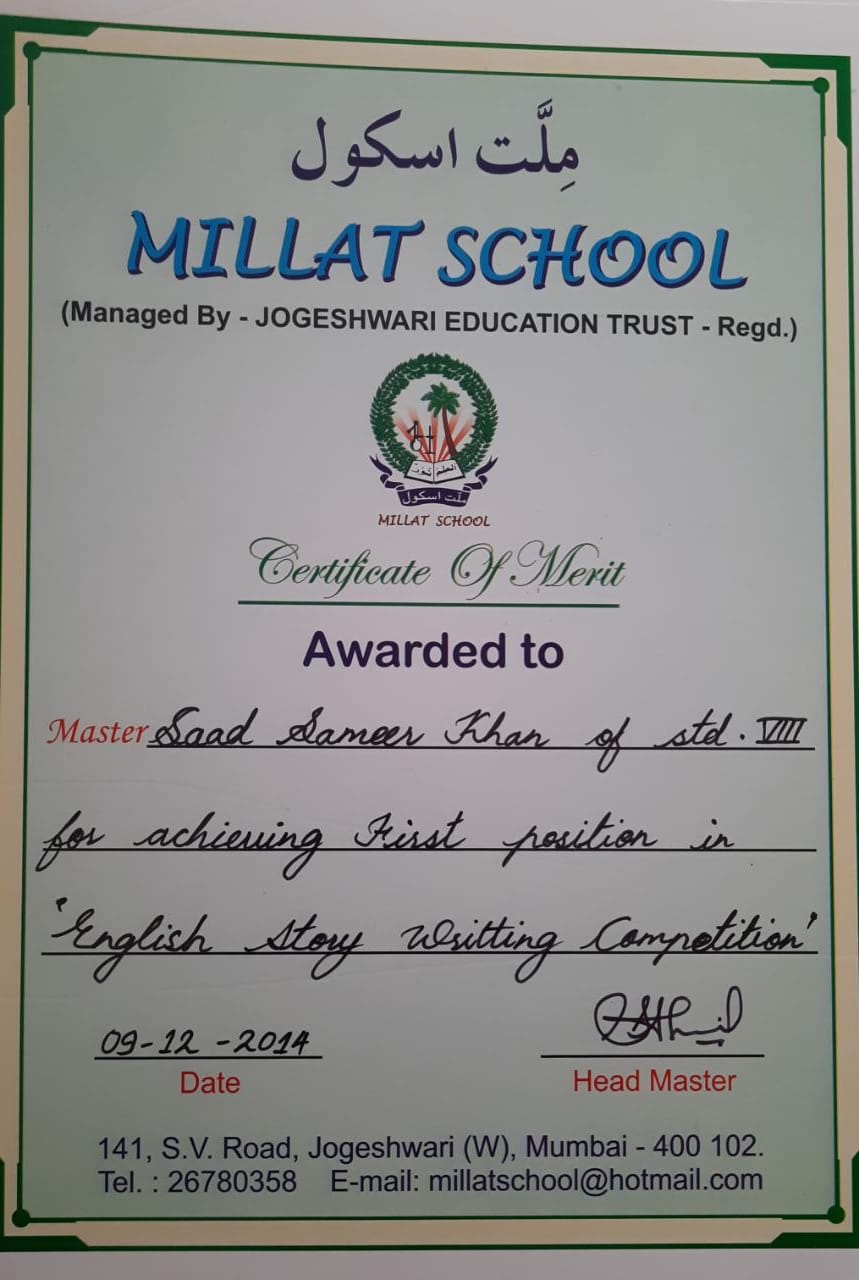 مِلَّت اسکول
MILLAT SCHOOL
(Managed By - JOGESHWARI EDUCATION TRUST - Regd.)
ملّت اسکول
MILLAT SCHOOL
Certificate Of Merit
Awarded to
Master Saad Sameer Khan of std. VIII
for achieving First position in
'English Story Writting Competition'
09-12-2014
Date
Head Master
141, S.V. Road, Jogeshwari (W), Mumbai - 400 102.
Tel. : 26780358 E-mail: millatschool@hotmail.com